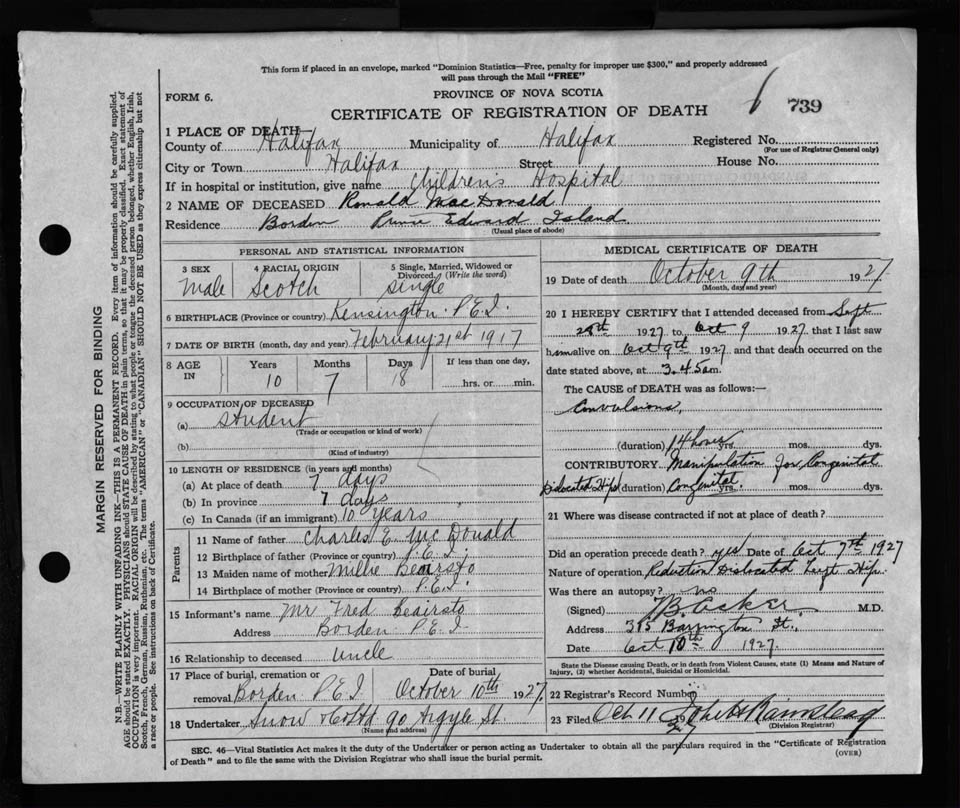 This form if placed in an envelope, marked "Dominion Statistics—Free, penalty for improper use $300," and properly addressed
will pass through the Mail "FREE"
FORM 6.
PROVINCE OF NOVA SCOTIA
CERTIFICATE OF REGISTRATION OF DEATH
6 739
1 PLACE OF DEATH
County of Halifax Municipality of Halifax Registered No.
(For use of Registrar General only)
City or Town Halifax Street House No.
If in hospital or institution, give name Children's Hospital
2 NAME OF DECEASED Ronald MacDonald
Residence Borden Prince Edward Island
(Usual place of abode)
PERSONAL AND STATISTICAL INFORMATION
3 SEX 4 RACIAL ORIGIN 5 Single, Married, Widowed or
Divorced (Write the word)
Male Scotch Single
6 BIRTHPLACE (Province or country) Kensington P.E.I.
7 DATE OF BIRTH (month, day and year) February 21st 1917
8 AGE IN Years Months Days If less than one day,
10 7 18 hrs. or min.
9 OCCUPATION OF DECEASED
(a) Student
(Trade or occupation or kind of work)
(b)
(Kind of industry)
10 LENGTH OF RESIDENCE (in years and months)
(a) At place of death 7 days
(b) In province 7 days
(c) In Canada (if an immigrant) 10 years
Parents
11 Name of father Charles E. McDonald
12 Birthplace of father (Province or country) P.E.I.
13 Maiden name of mother Millie Bearsto
14 Birthplace of mother (Province or country) P.E.I.
15 Informant's name Mr Fred Beairsto
Address Borden P.E.I
16 Relationship to deceased Uncle
17 Place of burial, cremation or Date of burial
removal Borden P.E.I October 10th 1927
18 Undertaker Snow & Co Ltd 90 Argyle St.
(Name and address)
MEDICAL CERTIFICATE OF DEATH
19 Date of death October 9th 1927
(Month, day and year)
20 I HEREBY CERTIFY that I attended deceased from Sept
1927 to Oct 9 1927 that I last saw
him alive on Oct 9th 1927 and that death occurred on the
date stated above, at 3.45 am.
The CAUSE of DEATH was as follows:—
Convulsions,
(duration) 14 hours yrs. mos. dys.
CONTRIBUTORY Manipulation for Congenital
Dislocated Hip (duration) Congenital yrs. mos. dys.
21 Where was disease contracted if not at place of death?
Did an operation precede death? yes Date of Oct 7th 1927
Nature of operation Reduction Dislocated Left Hip.
Was there an autopsy? no
(Signed) Acker M.D.
Address 385 Barrington St.,
Date Oct 10th 1927.
State the Disease causing Death, or in death from Violent Causes, state (1) Means and Nature of
Injury, (2) whether Accidental, Suicidal or Homicidal.
22 Registrar's Record Number
23 Filed Oct 11 1927
(Division Registrar)
SEC. 46—Vital Statistics Act makes it the duty of the Undertaker or person acting as Undertaker to obtain all the particulars required in the "Certificate of Registration
of Death" and to file the same with the Division Registrar who shall issue the burial permit.
(OVER)
MARGIN RESERVED FOR BINDING
N.B.—WRITE PLAINLY WITH UNFADING INK—THIS IS A PERMANENT RECORD. Every item of information should be carefully supplied.
AGE should be stated EXACTLY. PHYSICIANS should STATE CAUSE OF DEATH in plain terms, so that it may be properly classified. Exact statement of
OCCUPATION is very important. RACIAL ORIGIN will be described by stating to what people or tongue the deceased person belonged, whether English, Irish,
Scotch, French, German, Russian, Ruthenian, etc. The terms "AMERICAN" or "CANADIAN" SHOULD NOT BE USED as they express citizenship but not
a race or people. See instructions on back of Certificate.